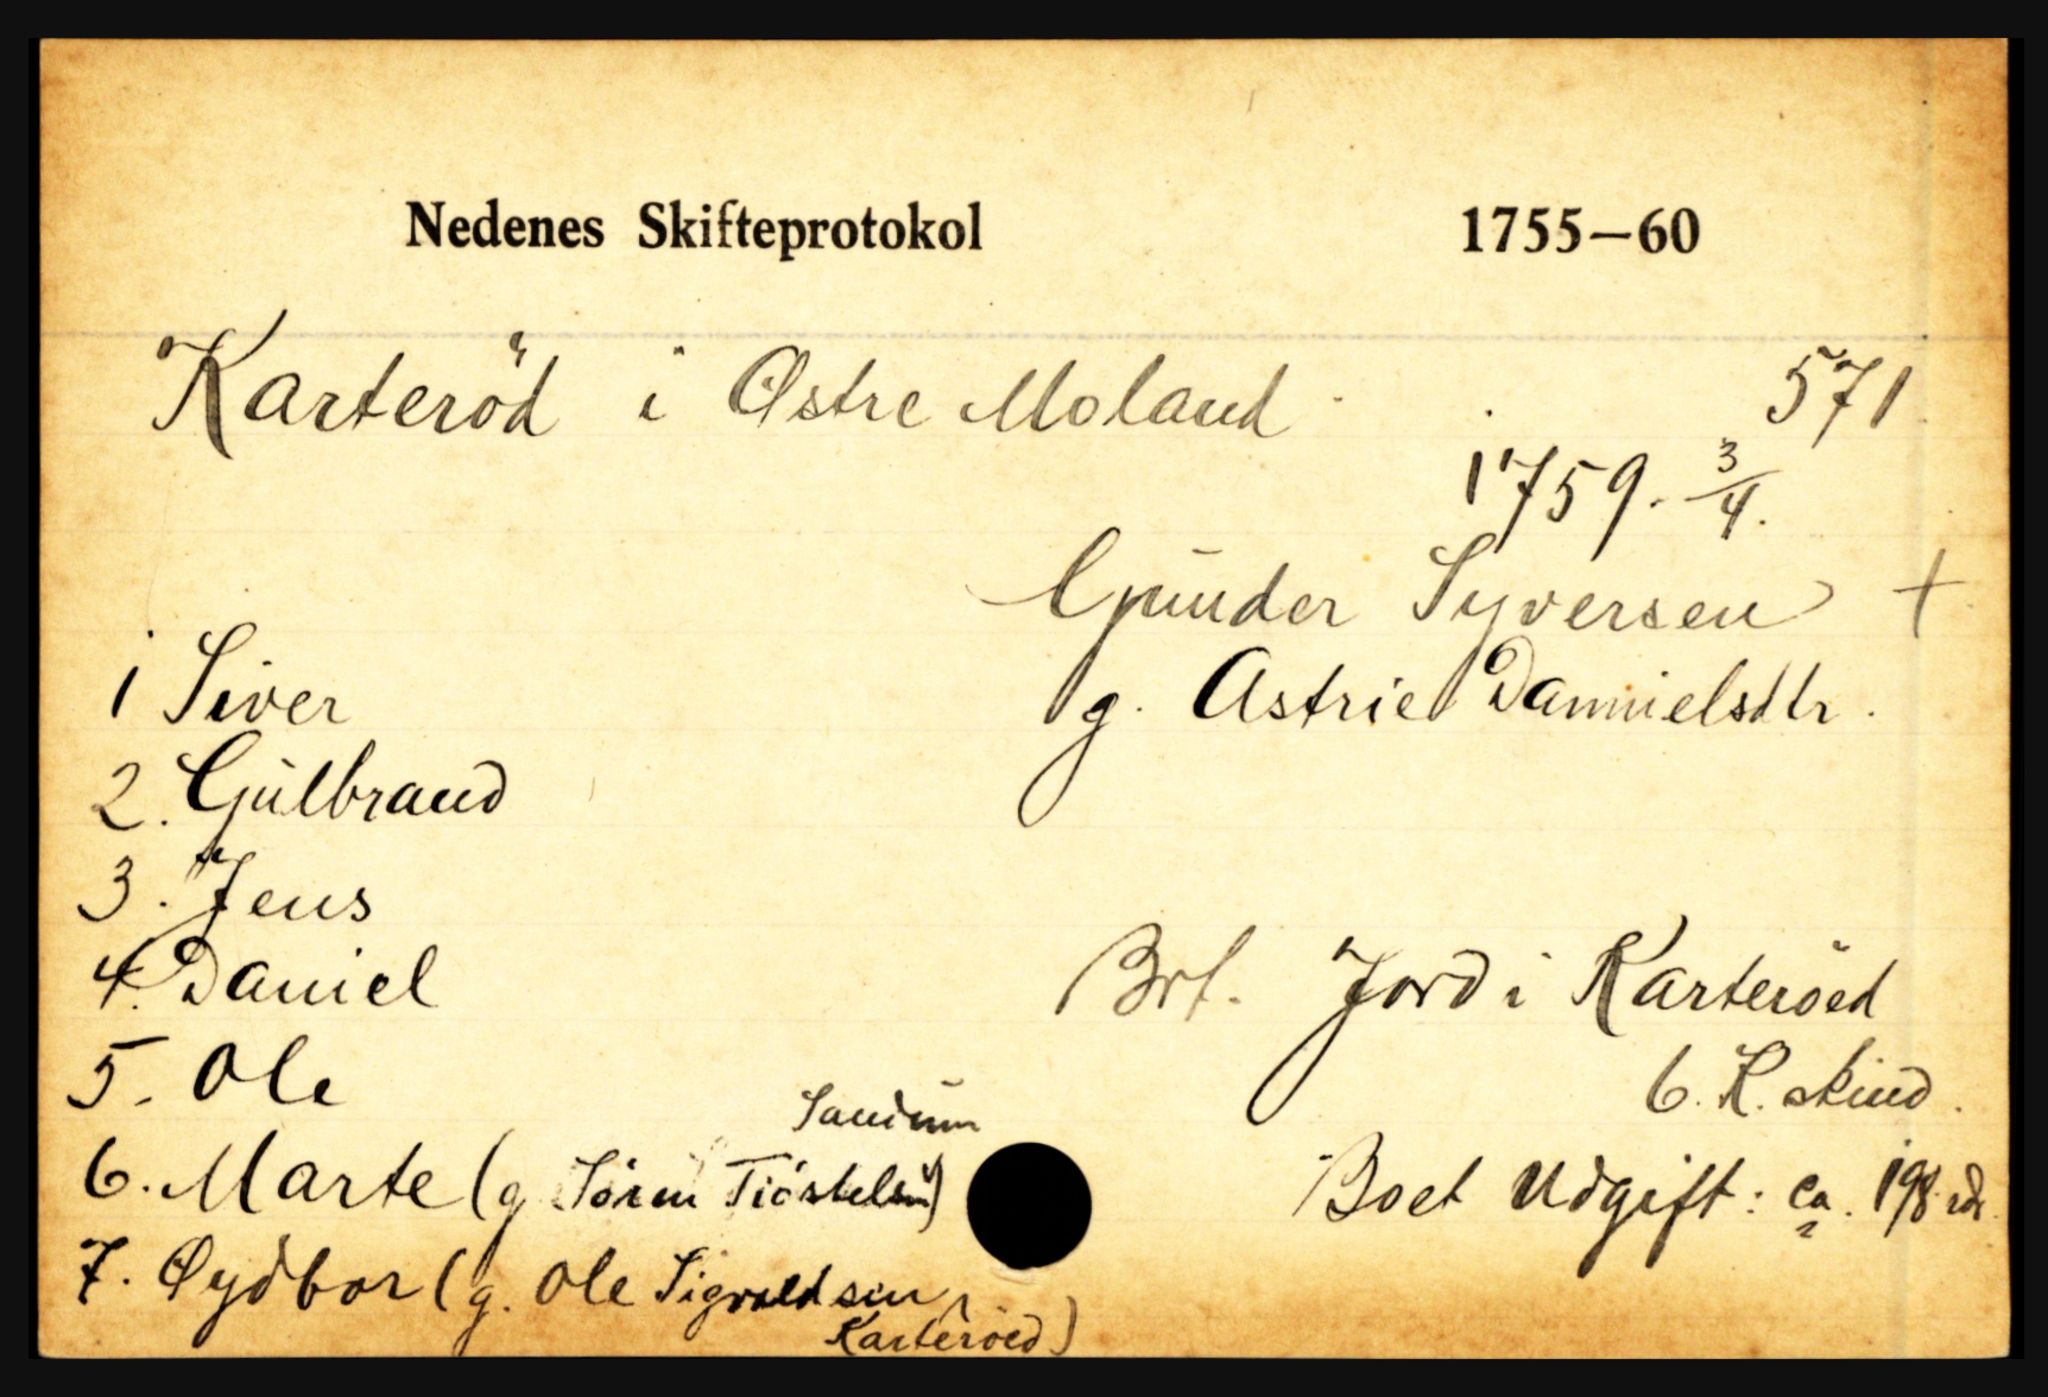 Nedenes Skifteprotokol 1755—60
Karteröd i Østre Moland 571
1759. 3/4.
Gunder Syversen +
g. Astrie Dannielsdtr.
1 Siver
2. Gulbrand
3. Jens
4. Daniel
5. Ole
6. Marte (g. Sören Tiöstelsen Sandum)
7. Øydbor (g. Ole Sigvaldsen
Karteröed)
Brt. Jord i Karteröed
6. K. skind.
Boet Udgift: ca. 198 rdr.